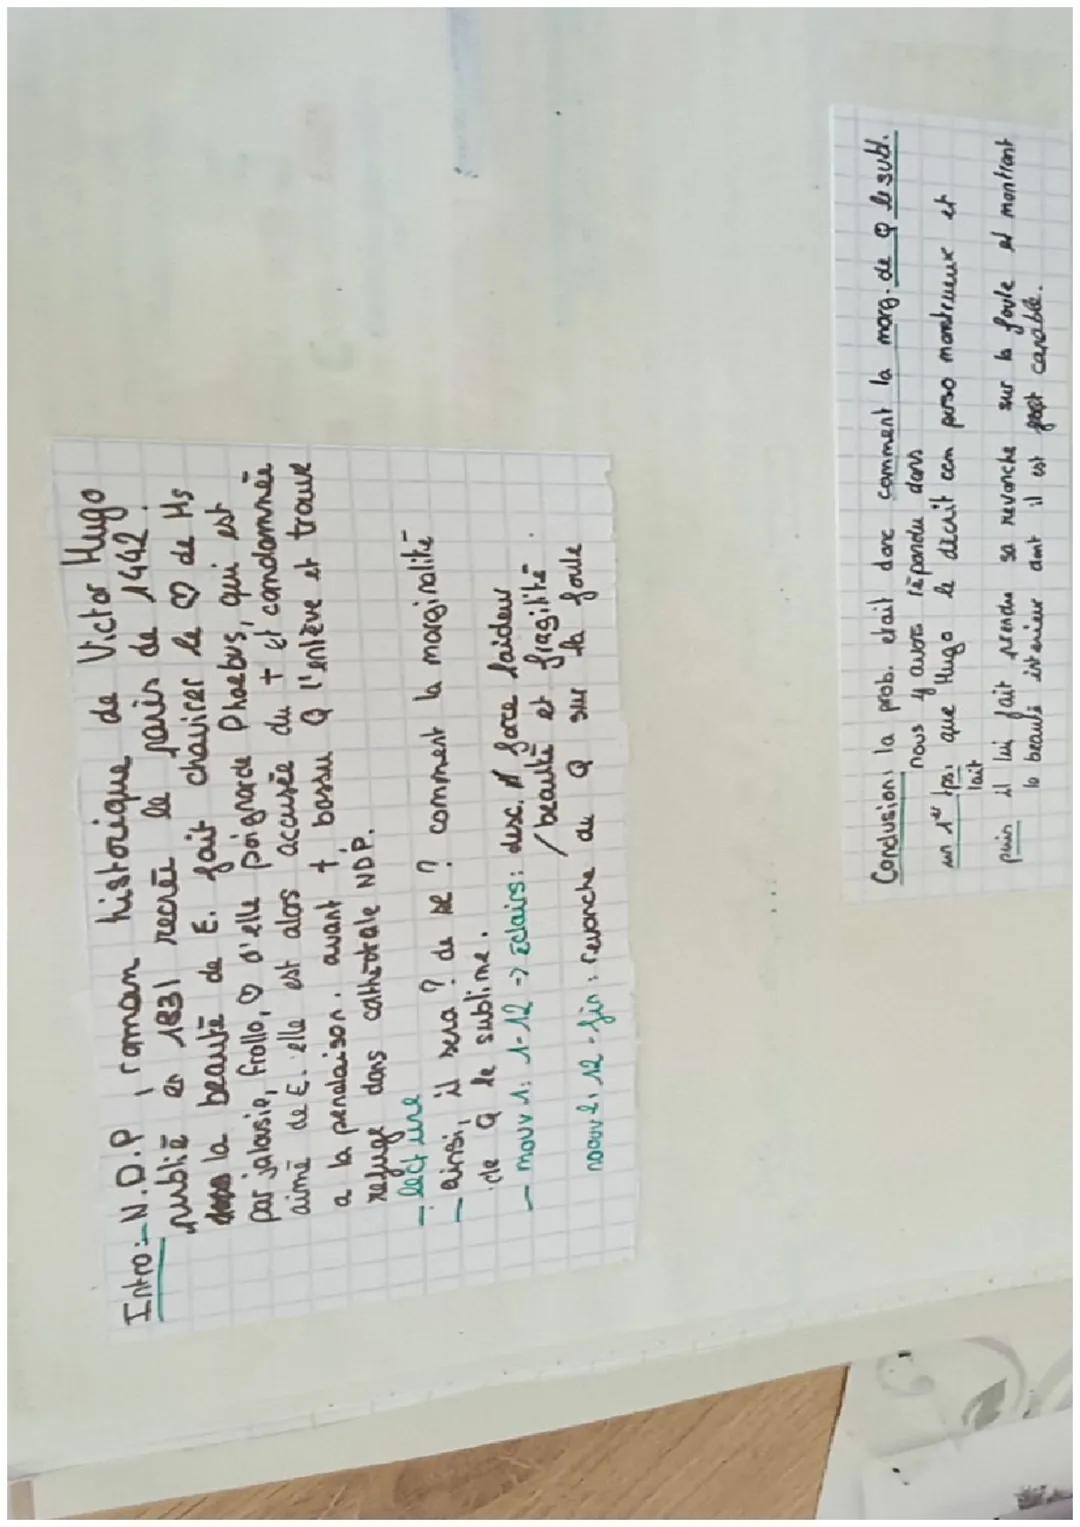 Intro:- N.D.P, roman historique de Victor Hugo
publié en 1831 recrée le paris de 1442.
la beauté de E. fait chavirer le ♡ de Hs
par jalousie, frollo, ♡ d'elle poignarde Phoebus, qui est
aimé de E. elle est alors accusée du + et condamnée
a la pendaison. avant + bossu Q l'enlève et trouve
refuge dans cathédrale NDP.
- lecture
- ainsi, il sera ? de se ? comment la marginalité
de Q le sublime.
- mouv 1: 1-12 -> Eclairs: desc. force laideur
/beauté et fragilité.
mouv 2, 12-fin: revanche de Q sur la foule
Conclusion, la prob. etait donc comment la marg. de Q le subl.
nous y avons répondu dans
un 1er tps, que Hugo le décrit com perso monstrueux et
lait
puis il lui fait prendre sa revanche sur la foule et montrant
la beauté interieur dont il est capable.